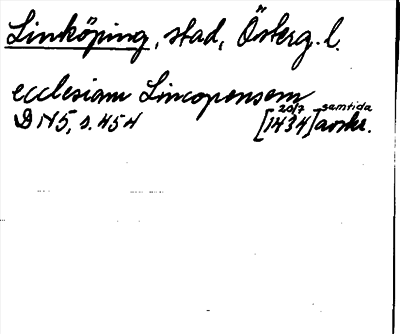 Linköping, stad, Österg. l.
ecclesiam Lincopensem
20/7 samtida
DN5, s. 454 [1434] avskr.